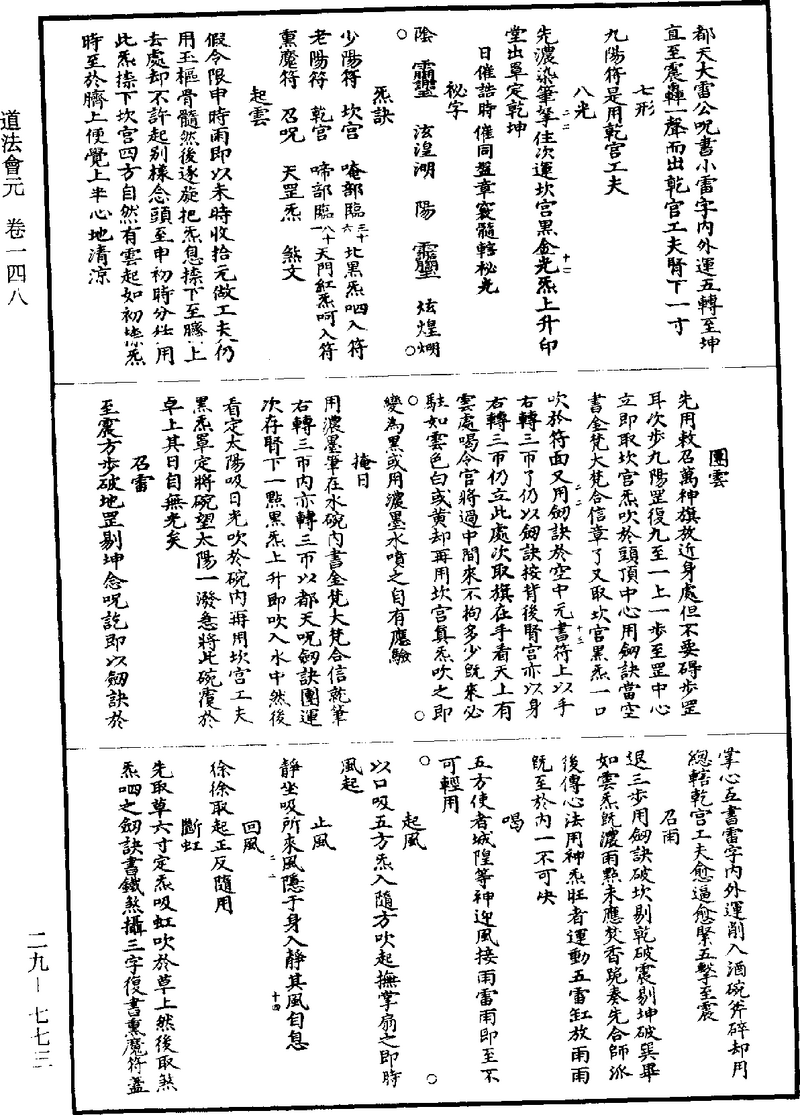 都天大雷公呪書小雷字內外運五轉至坤
直至震轟一聲而出乾宮工夫腎下一寸
七形
九陽符是用乾宮工夫
八光
先濃染筆筆住次運坎宮黑金光炁上升印
堂出單定乾坤
日催誥時催同盤章竅髓轄秘光
秘字
陰 泫湟湖 陽 炫煌煳
炁訣
少陽符 坎宮 唵部臨 三十六 北黑炁呬入符
老陽符 乾宮 啼部臨 八十一 天門紅炁呵入符
熏魔符 召呪 天罡炁 煞文
起雲
假令限申時雨即以未時收拾元做工夫仍
用玉樞骨髓然後逐旋把炁息捺下至臍上
去處却不許起別樣念頭至申初時分纔用
此炁捺下坎宮四方自然有雲起如初捺炁
時至於臍上便覺上半心地清涼
團雲
先用敕召萬神旗放近身處但不要碍步罡
耳次步九陽罡復九至一上一步至罡中心
立即取坎宮炁吹於頭頂中心用劒訣當空
書金梵大梵合信章了又取坎宮黑炁一口
吹於符面又用劒訣於空中元書符上以手
右轉三帀了仍以劒訣按背後腎宮亦以身
右轉三帀仍立此處次取旗在手看天上有
雲處喝令官將過中間來不拘多少既來必
駐如雲色白或黃却再用坎宮真炁吹之即
變為黑或用濃墨水噴之自有應驗
掩日
用濃墨筆在水碗內書金梵大梵合信訖筆
右轉三帀內亦轉三帀以都天呪劒訣團運
次存腎下一點黑炁上升即吹入水中然後
看定太陽吸日光吹於碗內再用坎宮工夫
黑炁單定將碗望太陽一潑急將此碗覆於
卓上其日自無光矣
召雷
至震方步破地罡剔坤念呪訖即以劒訣於
掌心五書雷字內外運削入酒碗斧碎却用
總轄乾宮工夫愈逼愈緊五擊至震
召雨
退三步用劒訣破坎剔乾破震剔坤破巽畢
如雲炁既濃雨點未應焚香跪奏先合師派
後傳心法用神炁旺者運動五雷缸放雨雨
既至於內一不可缺
喝
五方使者城隍等神迎風接雨雷雨即至不
可輕用
起風
以口吸五方炁入隨方吹起撫掌扇之即時
風起
止風
靜坐吸所來風隱于身入靜其風自息
回風
徐徐取起正反隨用
斷虹
先取草六寸定炁吸虹吹於草上然後取煞
炁呬之劒訣書鐵煞攝三字復書熏魔符蓋
道法會元 卷一四八
二九—七七三